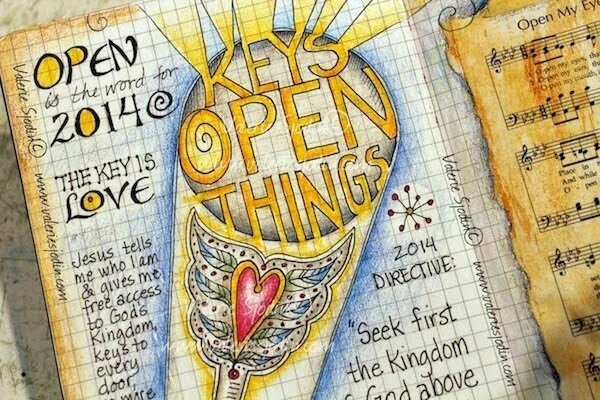 OPEN
is the word for
2014
THE KEY IS
LOVE
Jesus tells
me who I am
& gives me
free access
to Gods
Kingdom,
keys to
every
door,
more
KEYS
OPEN
THINGS
2014
DIRECTIVE:
"Seek first
the Kingdom
of God above
Open My Eye
Open my eyes, that
Open my ears, that
Place in
And while
O
pen
Valerie Sjodin © www.valeriesjodin.com
Valerie Sjodin © www.valeriesjodin.com